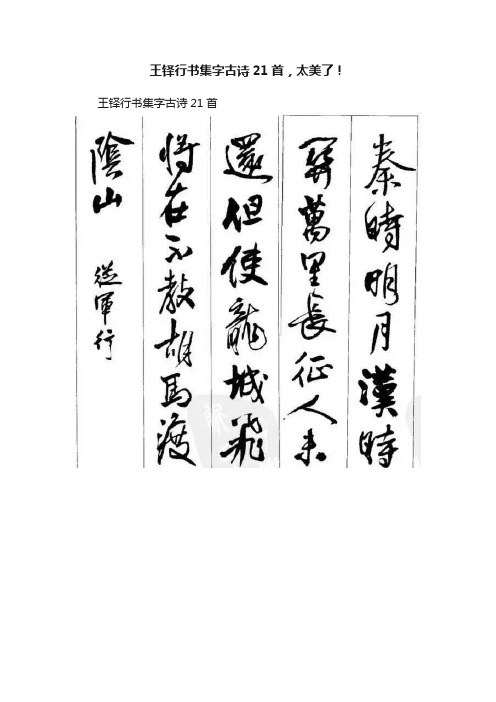 王铎行书集字古诗21首，太美了！
王铎行书集字古诗21首
秦時明月漢時
關萬里長征人未
還但使龍城飛
將在不教胡馬渡
陰山
從軍行